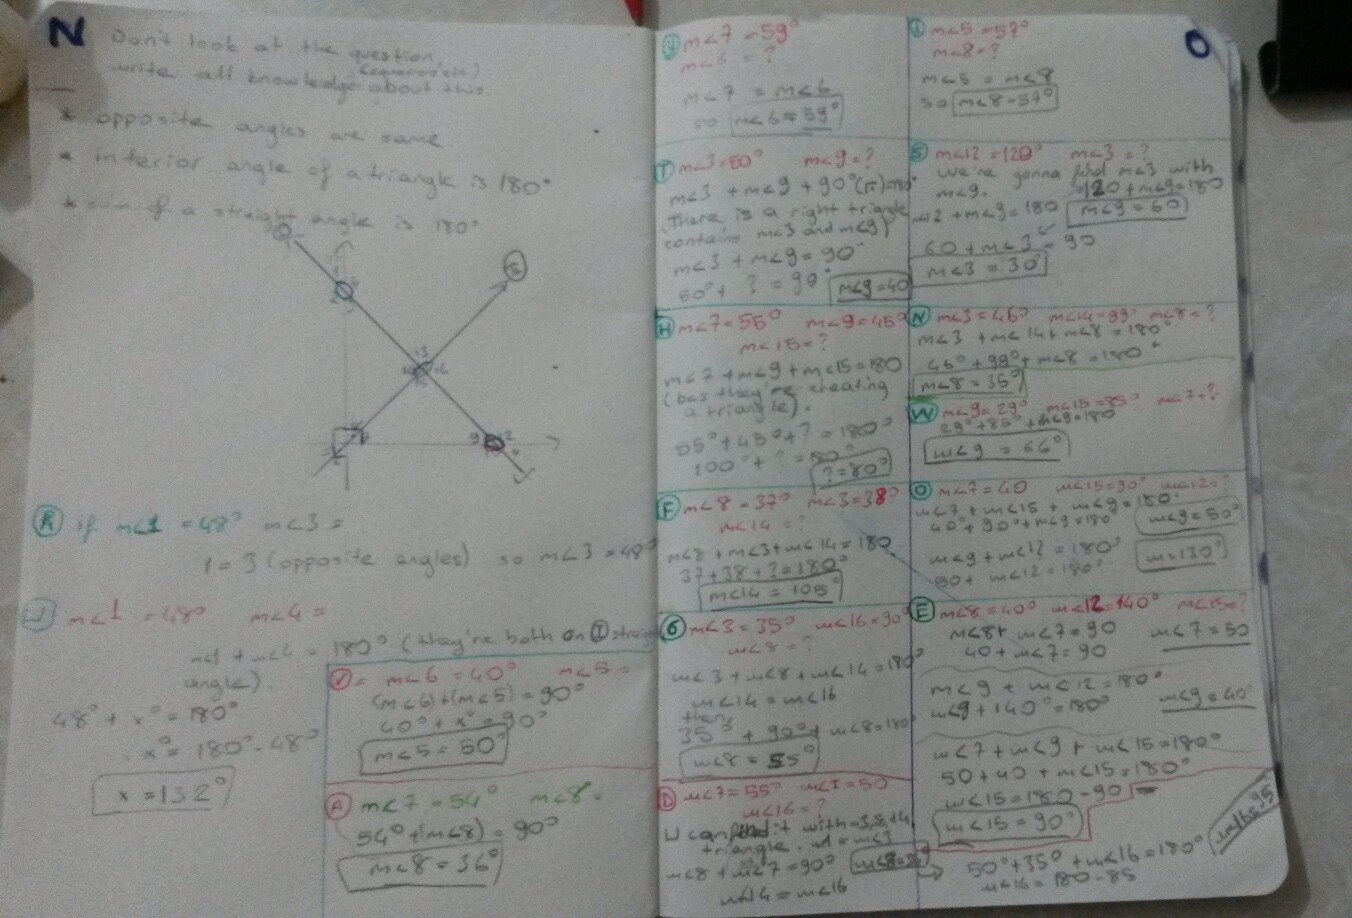 N
Don't look at the question,
write all knowledge about this.
* opposite angles are same.
* interior angle of a triangle is 180°
* sum of a straight angle is 180°
R if m<1 = 48° m<3 =
1 = 3 (opposite angles) so m<3 = 48°
m<1 = 48° m<4 =
m<1 + m<4 = 180° (they're both on straight
angle).
48° + x° = 180°
x° = 180° - 48°
x = 132°
m<6 = 40° m<5 =
(m<6)+(m<5) = 90°
40° + x° = 90°
m<5 = 50°
A m<7 = 54° m<8 =
54° + (m<8) = 90°
m<8 = 36°
m<7 = 59°
m<6 = ?
m<7 = m<6
so m<6 = 59°
T m<3 = 50° m<9 = ?
m<3 + m<9 + 90° = 180°
(there is a right triangle
contains m<3 and m<9)
m<3 + m<9 = 90°
50° + ? = 90° m<9 = 40
H m<7 = 55° m<9 = 45°
m<15 = ?
m<7 + m<9 + m<15 = 180
(bcs they're creating
a triangle).
55° + 45° + ? = 180°
100° + ? = 180°
? = 80°
F m<8 = 37° m<3 = 38°
m<14 = ?
m<8 + m<3 + m<14 = 180
37 + 38 + ? = 180°
m<14 = 105°
m<3 = 35° m<16 = 90°
m<8 = ?
m<3 + m<8 + m<14 = 180°
m<14 = m<16
then
35° + 90° + m<8 = 180°
m<8 = 55°
D m<7 = 55° m<1 = 50
m<16 = ?
triangle. m<3
m<8 + m<7 = 90°
m<14 = m<16
O
I m<5 = 57°
m<8 = ?
m<5 = m<8
so m<8 = 57°
S m<12 = 120° m<3 = ?
We're gonna find m<3 with
m<9. 120 + m<9 = 180
m<9 = 180 m<9 = 60
60 + m<3 = 90
m<3 = 30°
N m<3 = 46° m<14 = 99° m<8 = ?
m<3 + m<14 + m<8 = 180°
46° + 99° + m<8 = 180°
m<8 = 35°
W m<9 = 29° m<15 = 85° m<7 = ?
29° + 85° + m<9 = 180
m<9 = 66°
O m<7 = 40 m<15 = 90° m<12 = ?
m<7 + m<15 + m<9 = 180°
40° + 90° + m<9 = 180° m<9 = 50°
m<9 + m<12 = 180°
50 + m<12 = 180° m = 130°
E m<8 = 40° m<12 = 140° m<15 = ?
m<8 + m<7 = 90 m<7 = 50
40 + m<7 = 90
m<9 + m<12 = 180°
m<9 + 140° = 180° m<9 = 40°
m<7 + m<9 + m<15 = 180°
50 + 40 + m<15 = 180°
m<15 = 180 - 90
m<15 = 90°
50° + 35° + m<16 = 180°
m<16 = 180 - 85
m<16 = 95